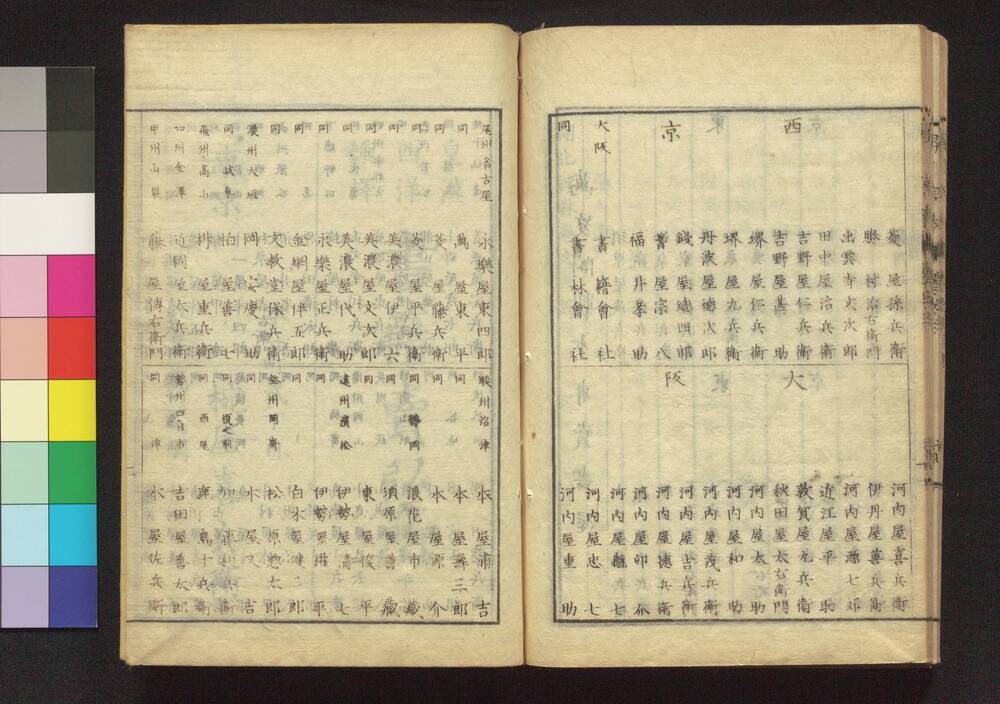 西
京
菱屋孫兵衛
勝村治右衛門
出雲寺文次郎
田中屋治兵衛
吉野屋仁兵衛
吉野屋甚助
堺屋仁兵衛
堺屋九兵衛
丹波屋徳次郎
錢屋惣四郎
屋宗八
福井孝助
大阪
書籍會社
同
書林會社
大
阪
河内屋喜兵衛
伊丹屋善兵衛
河内屋源七郎
近江屋平助
敦賀屋九兵衛
秋田屋太右衛門
河内屋太助
河内屋和助
河内屋茂兵衛
河内屋吉兵衛
河内屋德兵衛
河内屋卯介
河内屋七
河内屋忠七
河内屋重助
尾州名古屋
永樂屋東四郎
同
萬屋東平
同
菱屋藤兵衛
同
菱屋平兵衛
同
美濃屋伊六
同
美濃屋文次郎
同
美濃屋代助
同
永樂屋正兵衛
同
金網屋伴五郎
同
文教堂保兵衛
濃州大垣
岡安慶助
同岐阜
屋喜七
飛州高山
屋重兵衛
加州金澤
近岡屋兵衛
甲州山梨
藤屋傳右衛門
駿州沼津
本屋浦吉
同
本屋壽三郎
同
本屋源介
同静岡
浪花屋市藏
同
須原屋善藏
同
東屋俊平
遠州濱松
伊勢屋清七
同
伊勢屋平
同
白木屋健三郎
參州岡崎
松原惣太郎
同
本屋又吉
同
加藤兵衛
同西尾
十兵衛
勢州四日市
吉田屋善太郎
同津
木屋佐兵衛